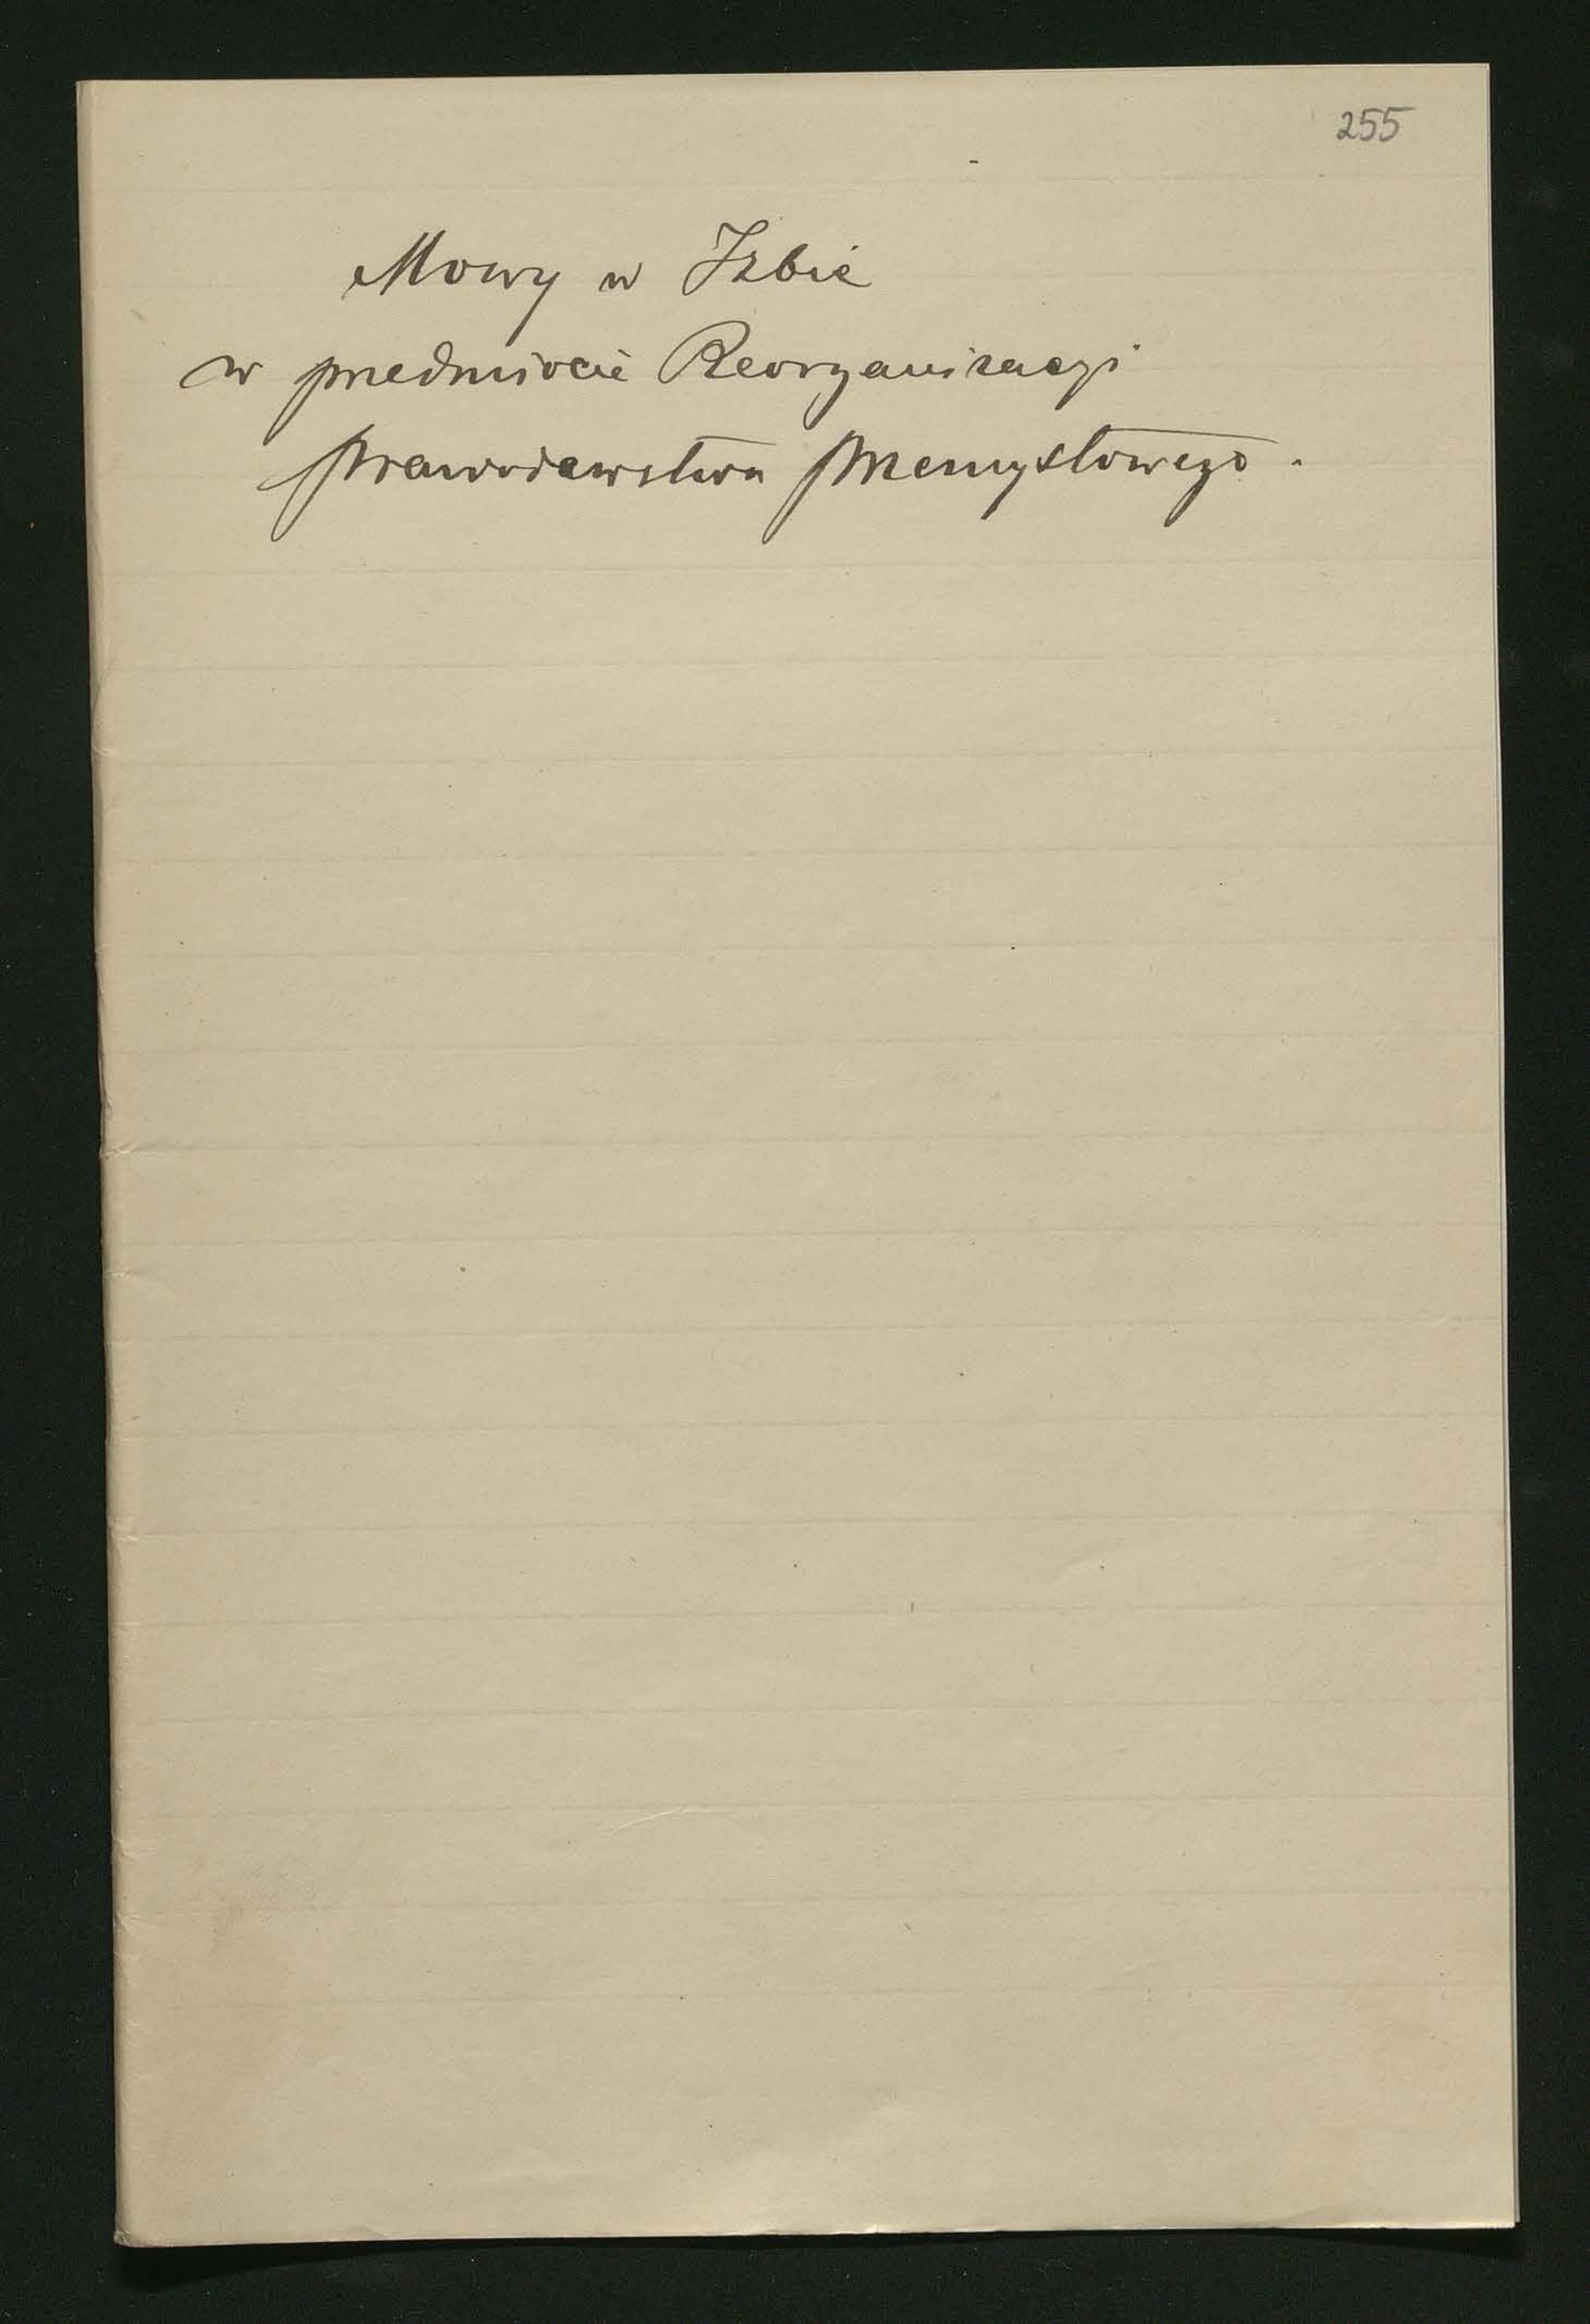 255
Mowy w Izbie
w przedmiocie Reorganizacyi
prawodawstwa przemysłowego.